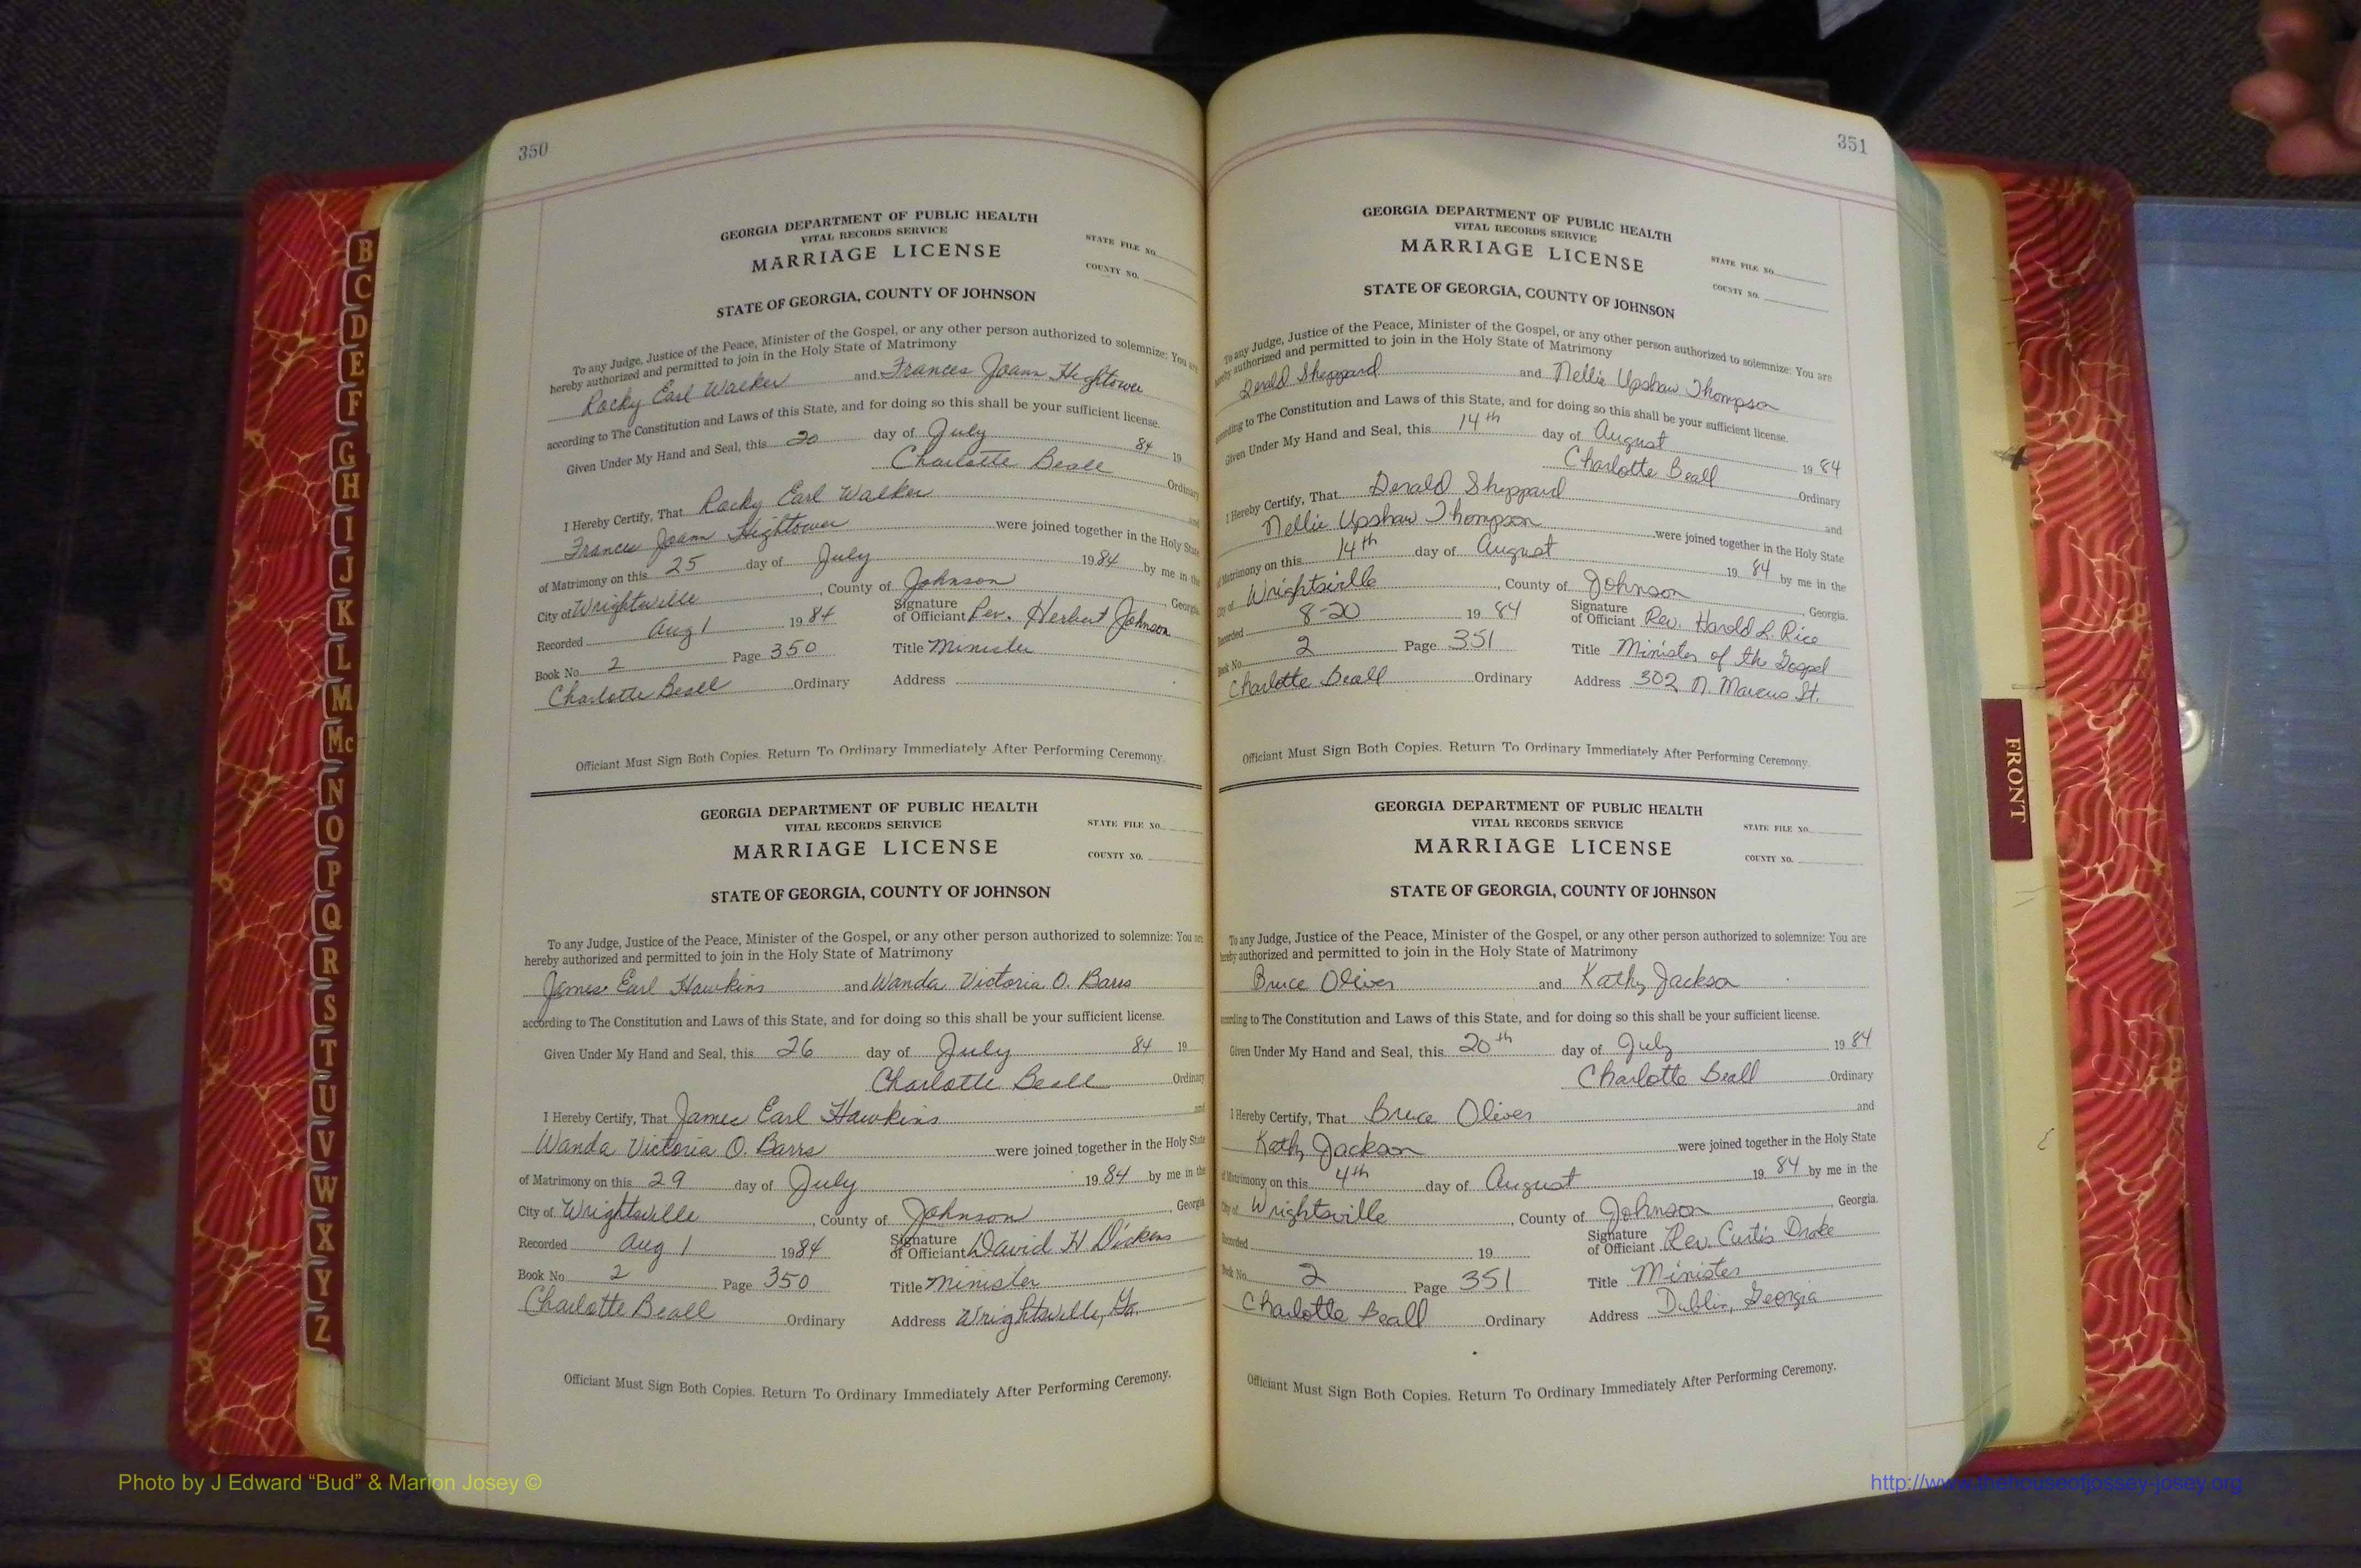 350
GEORGIA DEPARTMENT OF PUBLIC HEALTH
VITAL RECORDS SERVICE
MARRIAGE LICENSE
STATE FILE NO.
COUNTY NO.
STATE OF GEORGIA, COUNTY OF JOHNSON
To any Judge, Justice of the Peace, Minister of the Gospel, or any other person authorized to solemnize: You are
hereby authorized and permitted to join in the Holy State of Matrimony
Rocky Earl Walker and Frances Joann Hightower
according to The Constitution and Laws of this State, and for doing so this shall be your sufficient license.
Given Under My Hand and Seal, this 20 day of July 84 19
Charlotte Beall Ordinary
I Hereby Certify, That Rocky Earl Walker and
Frances Joann Hightower were joined together in the Holy State
of Matrimony on this 25 day of July 1984 by me in the
City of Wrightsville, County of Johnson, Georgia
Recorded Aug 1 1984 Signature of Officiant Rev. Herbert Johnson
Book No. 2 Page 350 Title Minister
Charlotte Beall Ordinary Address
Officiant Must Sign Both Copies. Return To Ordinary Immediately After Performing Ceremony.
GEORGIA DEPARTMENT OF PUBLIC HEALTH
VITAL RECORDS SERVICE
MARRIAGE LICENSE
STATE FILE NO.
COUNTY NO.
STATE OF GEORGIA, COUNTY OF JOHNSON
To any Judge, Justice of the Peace, Minister of the Gospel, or any other person authorized to solemnize: You are
hereby authorized and permitted to join in the Holy State of Matrimony
James Earl Hawkins and Wanda Victoria O. Barrs
according to The Constitution and Laws of this State, and for doing so this shall be your sufficient license.
Given Under My Hand and Seal, this 26 day of July 84 19
Charlotte Beall Ordinary
I Hereby Certify, That James Earl Hawkins and
Wanda Victoria O. Barrs were joined together in the Holy State
of Matrimony on this 29 day of July 1984 by me in the
City of Wrightsville, County of Johnson, Georgia
Recorded Aug 1 1984 Signature of Officiant David H Dickens
Book No. 2 Page 350 Title Minister
Charlotte Beall Ordinary Address Wrightsville, Ga.
Officiant Must Sign Both Copies. Return To Ordinary Immediately After Performing Ceremony.
351
GEORGIA DEPARTMENT OF PUBLIC HEALTH
VITAL RECORDS SERVICE
MARRIAGE LICENSE
STATE FILE NO.
COUNTY NO.
STATE OF GEORGIA, COUNTY OF JOHNSON
To any Judge, Justice of the Peace, Minister of the Gospel, or any other person authorized to solemnize: You are
hereby authorized and permitted to join in the Holy State of Matrimony
Derald Sheppard and Nellie Upshaw Thompson
according to The Constitution and Laws of this State, and for doing so this shall be your sufficient license.
Given Under My Hand and Seal, this 14th day of August 1984
Charlotte Beall Ordinary
I Hereby Certify, That Derald Sheppard and
Nellie Upshaw Thompson were joined together in the Holy State
of Matrimony on this 14th day of August 19 84 by me in the
City of Wrightsville, County of Johnson, Georgia.
Recorded 8-20 19 84 Signature of Officiant Rev. Harold L. Rice
Book No. 2 Page 351 Title Minister of the Gospel
Charlotte Beall Ordinary Address 302 N. Marcus St.
Officiant Must Sign Both Copies. Return To Ordinary Immediately After Performing Ceremony.
GEORGIA DEPARTMENT OF PUBLIC HEALTH
VITAL RECORDS SERVICE
MARRIAGE LICENSE
STATE FILE NO.
COUNTY NO.
STATE OF GEORGIA, COUNTY OF JOHNSON
To any Judge, Justice of the Peace, Minister of the Gospel, or any other person authorized to solemnize: You are
hereby authorized and permitted to join in the Holy State of Matrimony
Bruce Oliver and Kathy Jackson
according to The Constitution and Laws of this State, and for doing so this shall be your sufficient license.
Given Under My Hand and Seal, this 20th day of July 1984
Charlotte Beall Ordinary
I Hereby Certify, That Bruce Oliver and
Kathy Jackson were joined together in the Holy State
of Matrimony on this 4th day of August 19 84 by me in the
City of Wrightsville, County of Johnson, Georgia.
Recorded 19 Signature of Officiant Rev. Curtis Drake
Book No. 2 Page 351 Title Minister
Charlotte Beall Ordinary Address Dublin, Georgia
Officiant Must Sign Both Copies. Return To Ordinary Immediately After Performing Ceremony.
B
C
D
E
F
G
H
I
J
K
L
M
Mc
N
O
P
Q
R
S
T
U
V
W
X
Y
Z
FRONT
Photo by J Edward “Bud” & Marion Josey ©
http://www.thehouseofjossey-josey.org